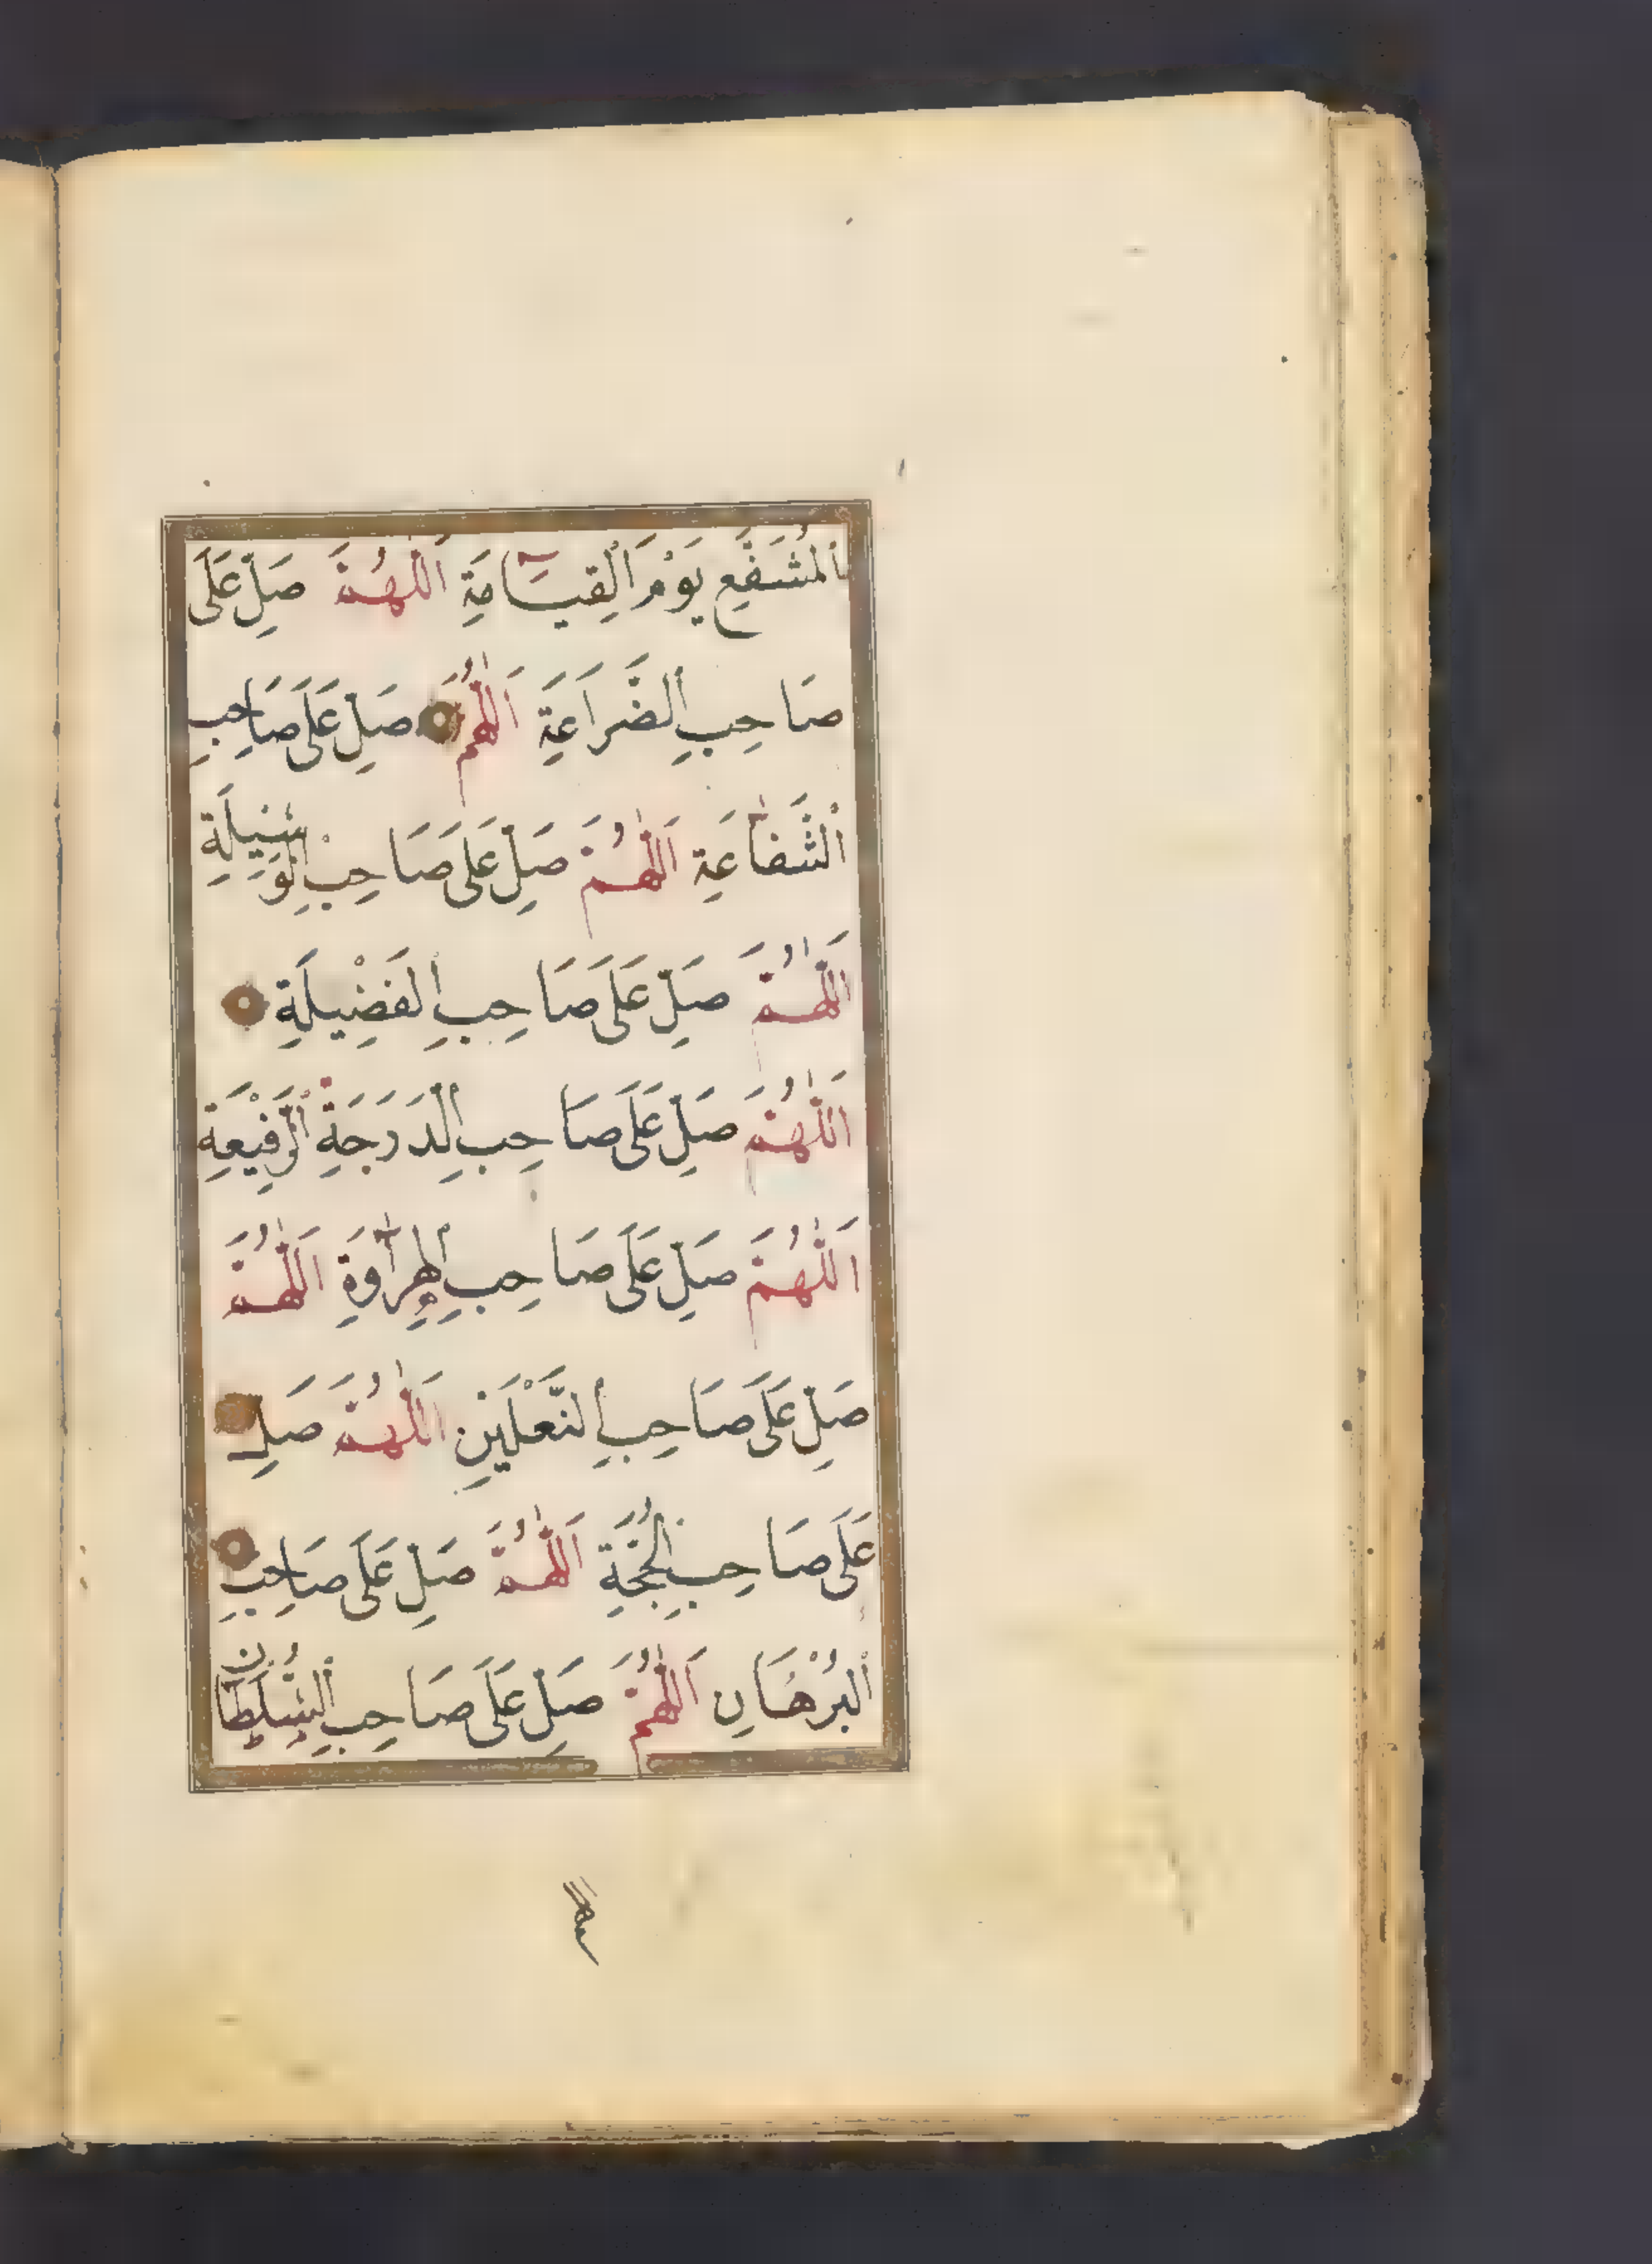 اَلْمُشَفَّعِ يَوْمَ اَلْقِيَامَةِ اَللّٰهُمَّ صَلِّ عَلَى
صَاحِبِ اَلضَّرَاعَةِ اَللّٰهُمَّ صَلِّ عَلَى صَاحِبِ
اَلشَّفَاعَةِ اَللّٰهُمَّ صَلِّ عَلَى صَاحِبِ الْوَسِيلَةِ
اَللّٰهُمَّ صَلِّ عَلَى صَاحِبِ الْفَضِيلَةِ
اَللّٰهُمَّ صَلِّ عَلَى صَاحِبِ الدَّرَجَةِ الرَّفِيعَةِ
اَللّٰهُمَّ صَلِّ عَلَى صَاحِبِ الْهِرَاوَةِ اَللّٰهُمَّ
صَلِّ عَلَى صَاحِبِ النَّعْلَيْنِ اَللّٰهُمَّ صَلِّ
عَلَى صَاحِبِ الْحُجَّةِ اَللّٰهُمَّ صَلِّ عَلَى صَاحِبِ
اَلْبُرْهَانِ اَللّٰهُمَّ صَلِّ عَلَى صَاحِبِ السُّلْطَانِ